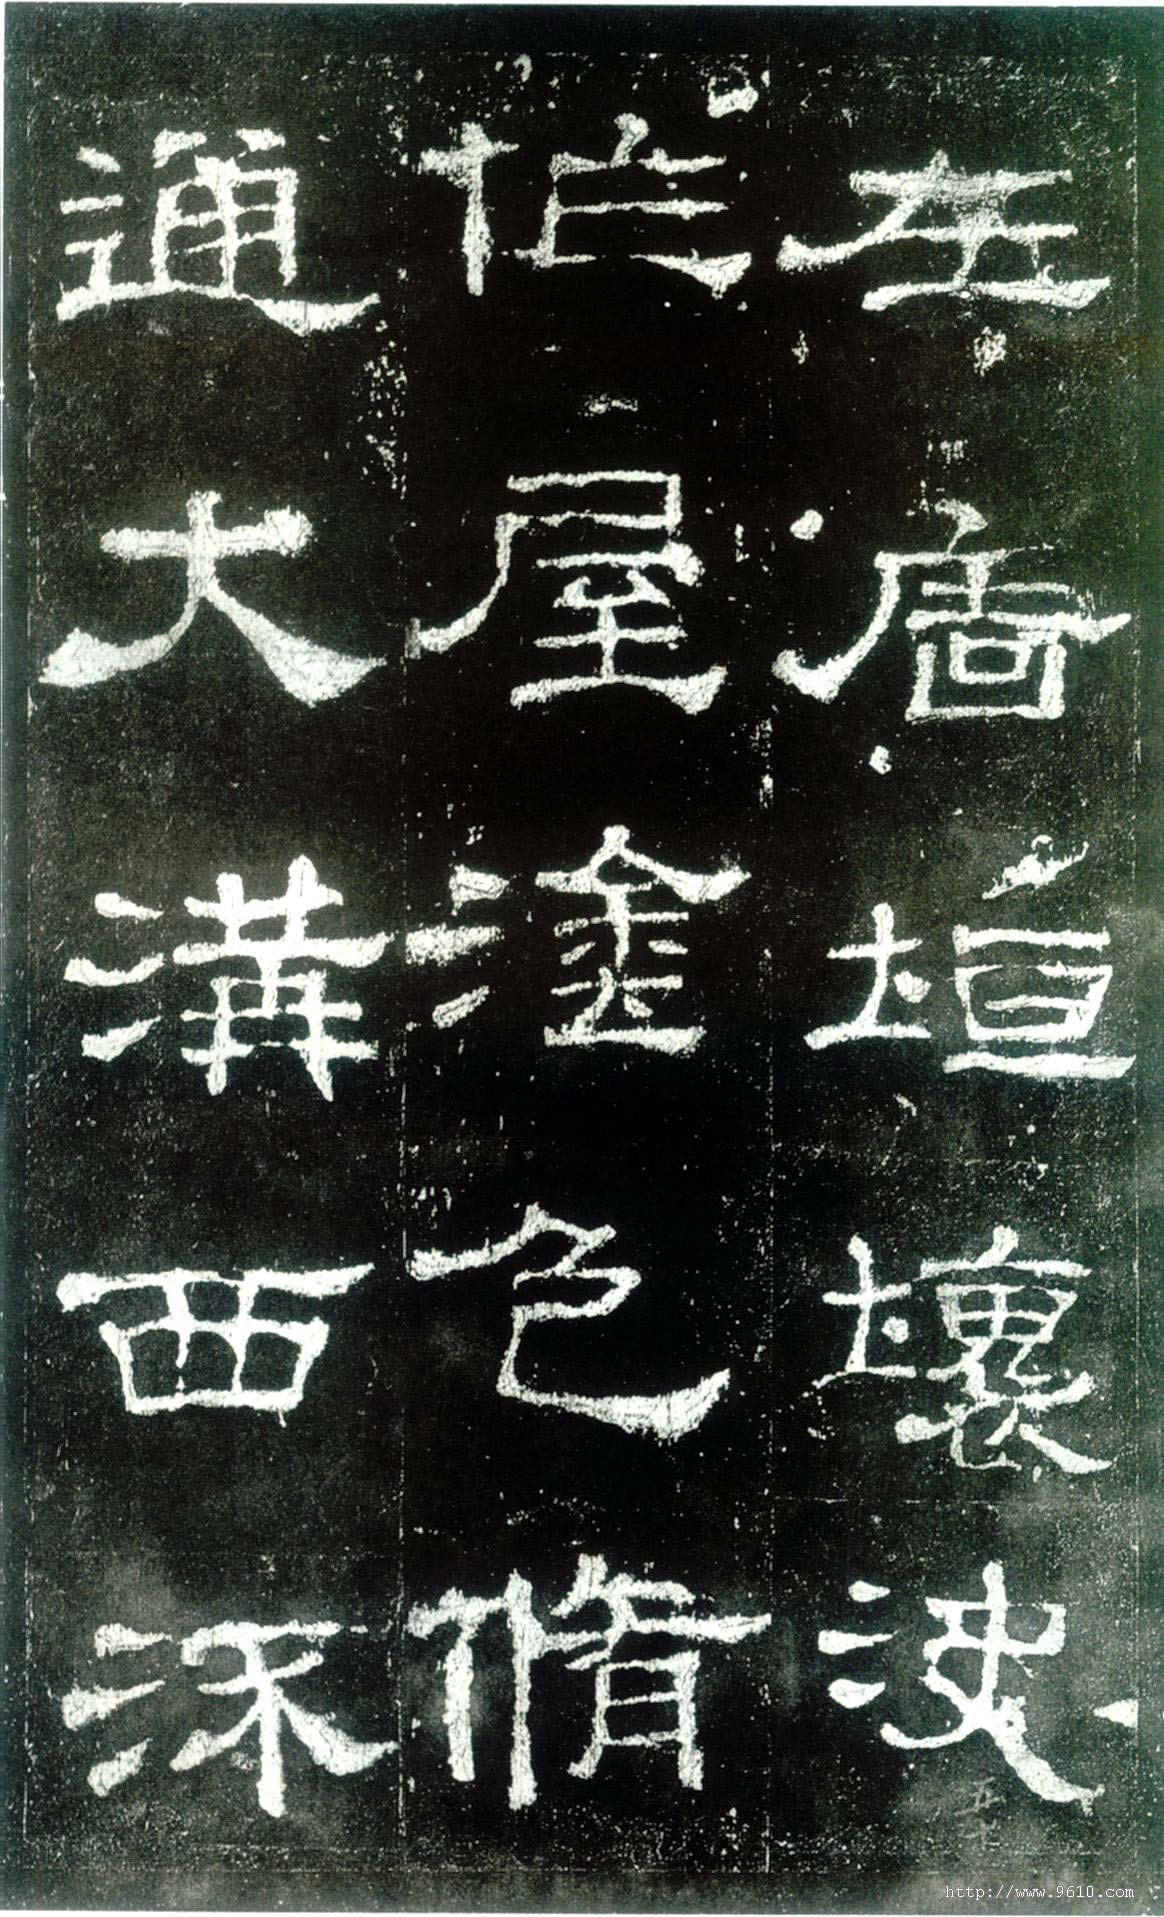 左廧垣壞決
作屋塗色脩
通大溝西流
http://www.9610.com